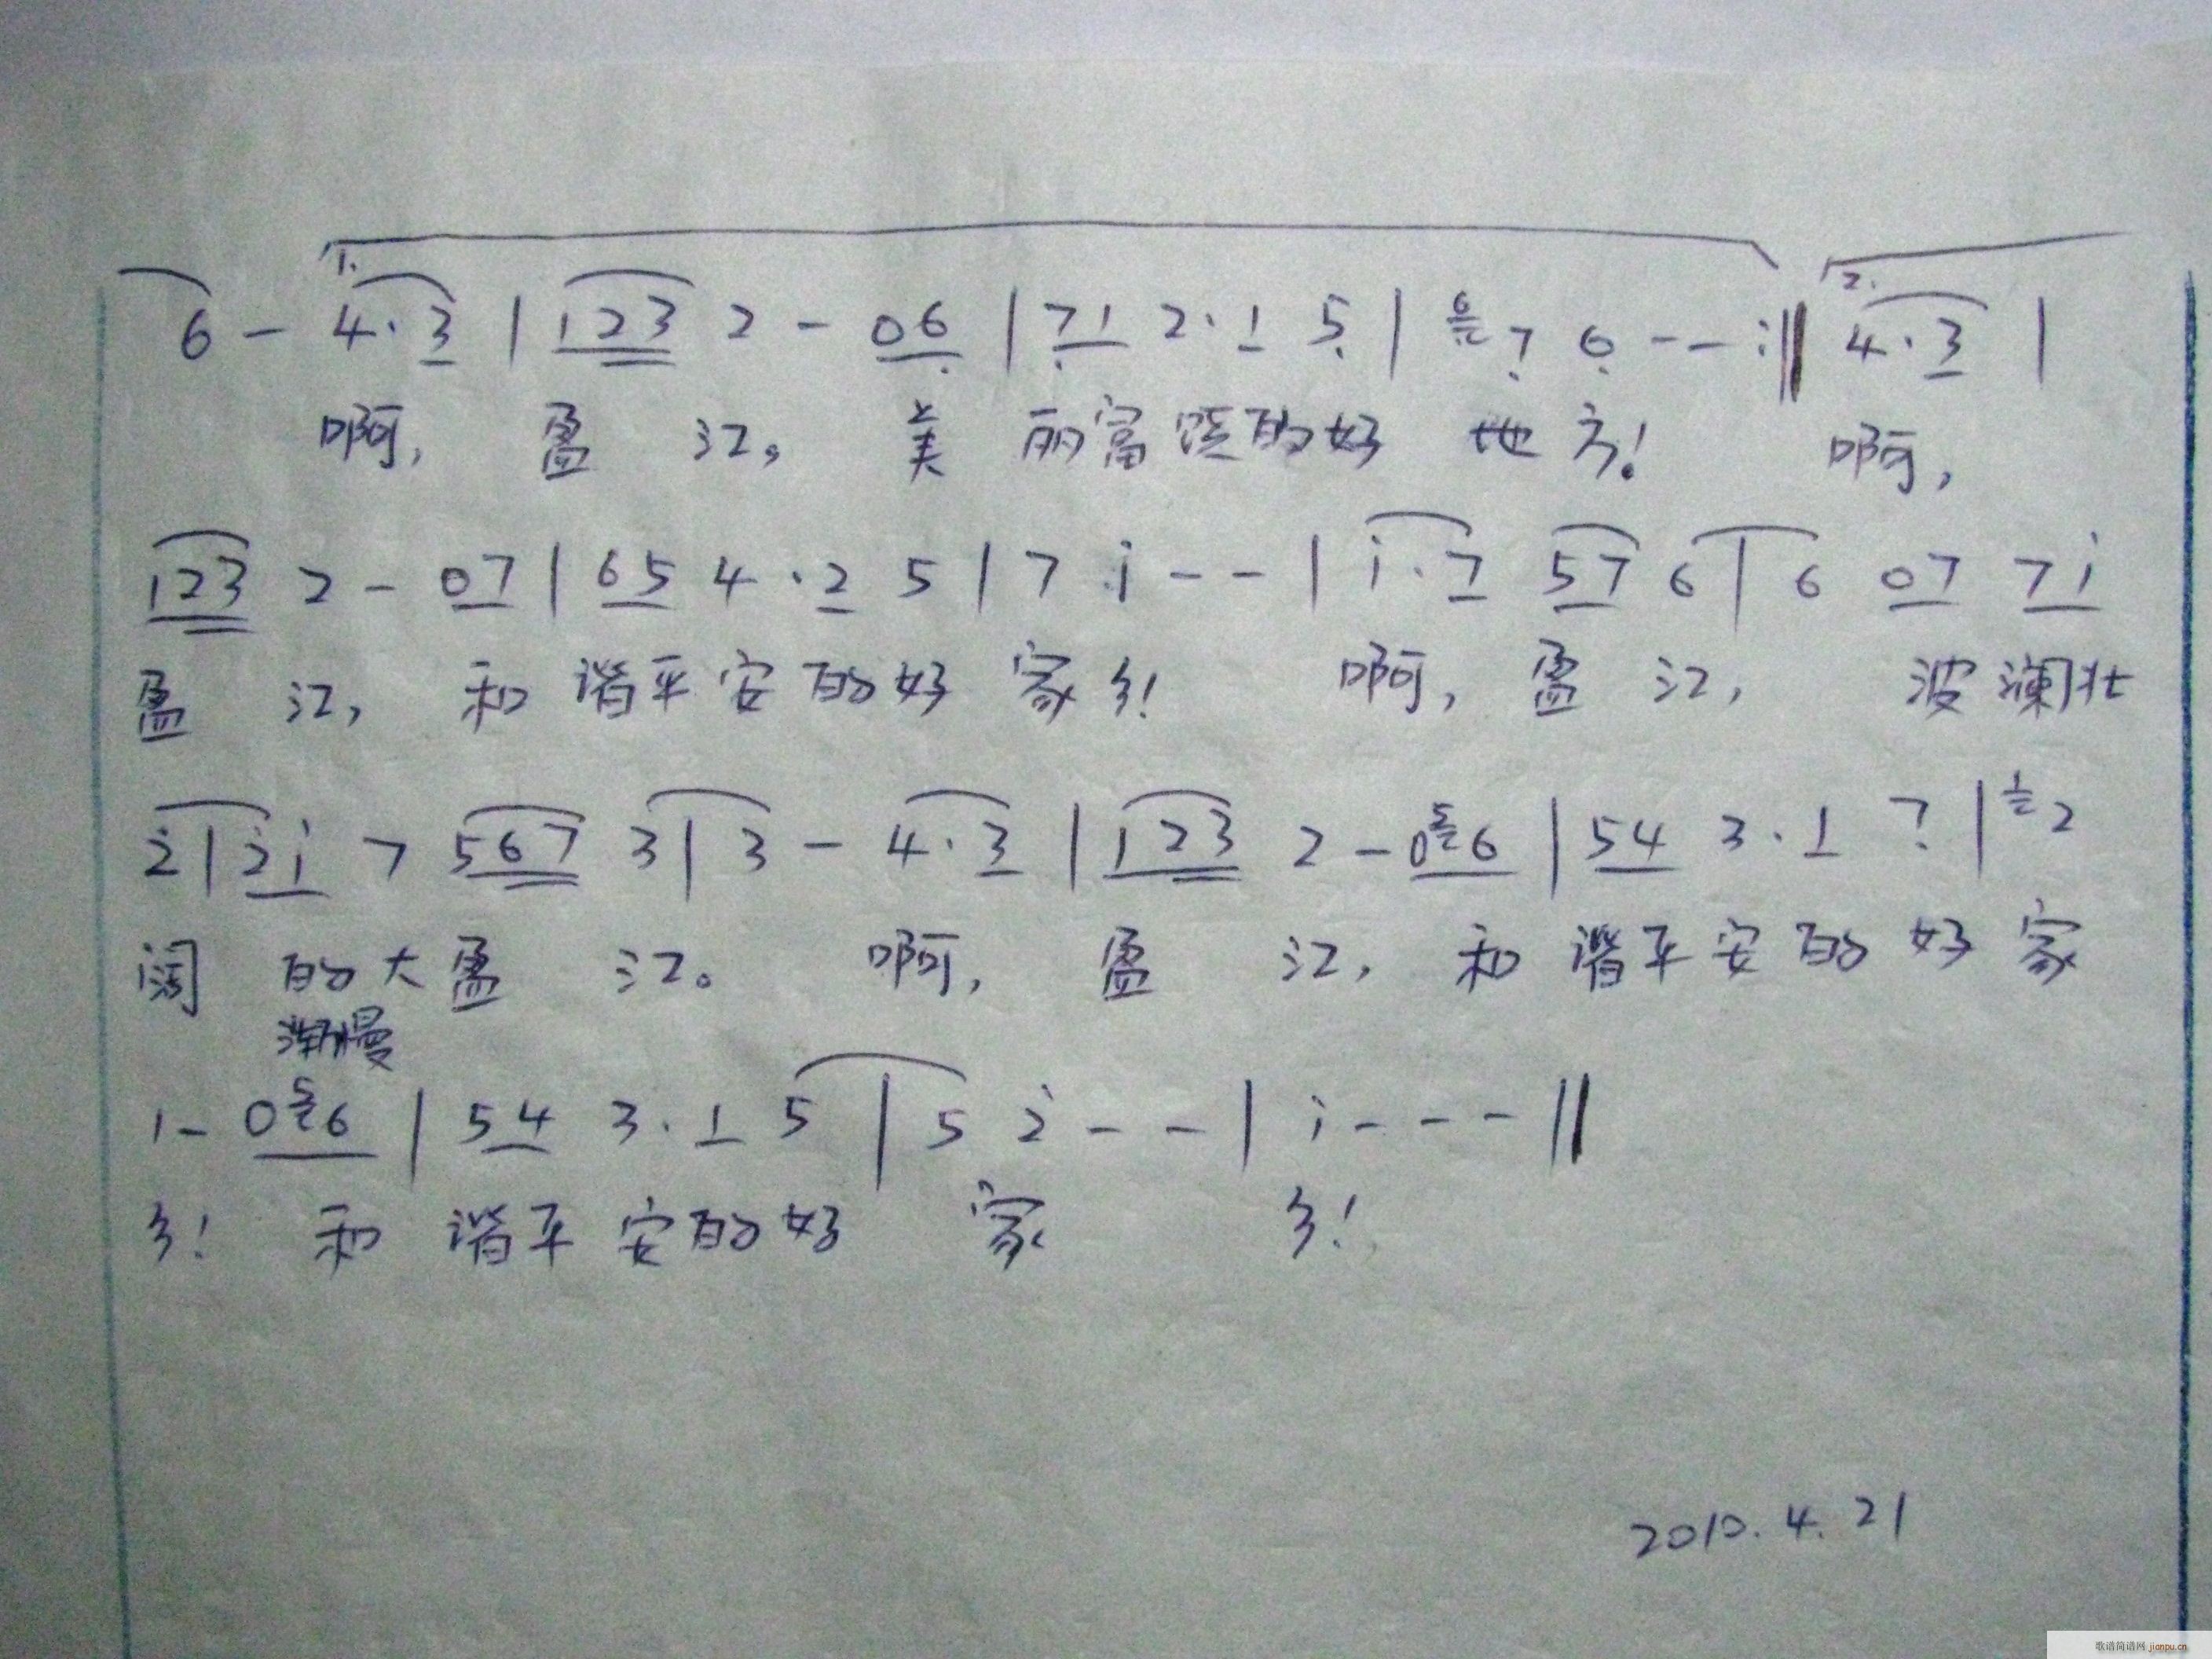 1. 2.
6 - 4·3 | 123 2 - 06 | 71 2·1 5 | 6 7 6 - - :‖ 4·3 |
啊, 盈 江。 美 丽富饶的好 地 方! 啊,
123 2 - 07 | 65 4·2 5 | 7 i - - | i·7 57 6 | 6 07 7i
盈 江, 和 谐平安的好 家乡! 啊, 盈 江, 波澜壮
2 | 2i 7 567 3 | 3 - 4·3 | 123 2 - 0 5 6 | 54 3·1 7 | 1 2
阔 的大盈 江。 啊, 盈 江, 和 谐平安的好 家
渐慢
1 - 0 5 6 | 54 3·1 5 | 5 2 - - | i - - - ‖
乡! 和 谐平安的好 家 乡!
2010.4.21
歌谱简谱网 jianpu.cn